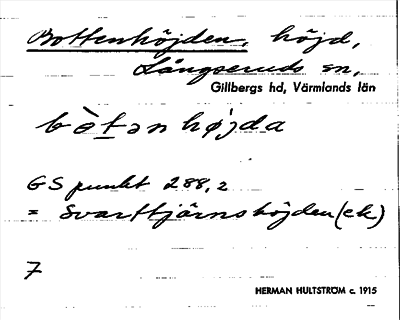 Bottenhöjden, höjd,
Långseruds sn,
Gillbergs hd, Värmlands län
bòt̲ən højda
GS punkt 288,2
= Svarttjärnshöjden (ek)
7
HERMAN HULTSTRÖM c. 1915